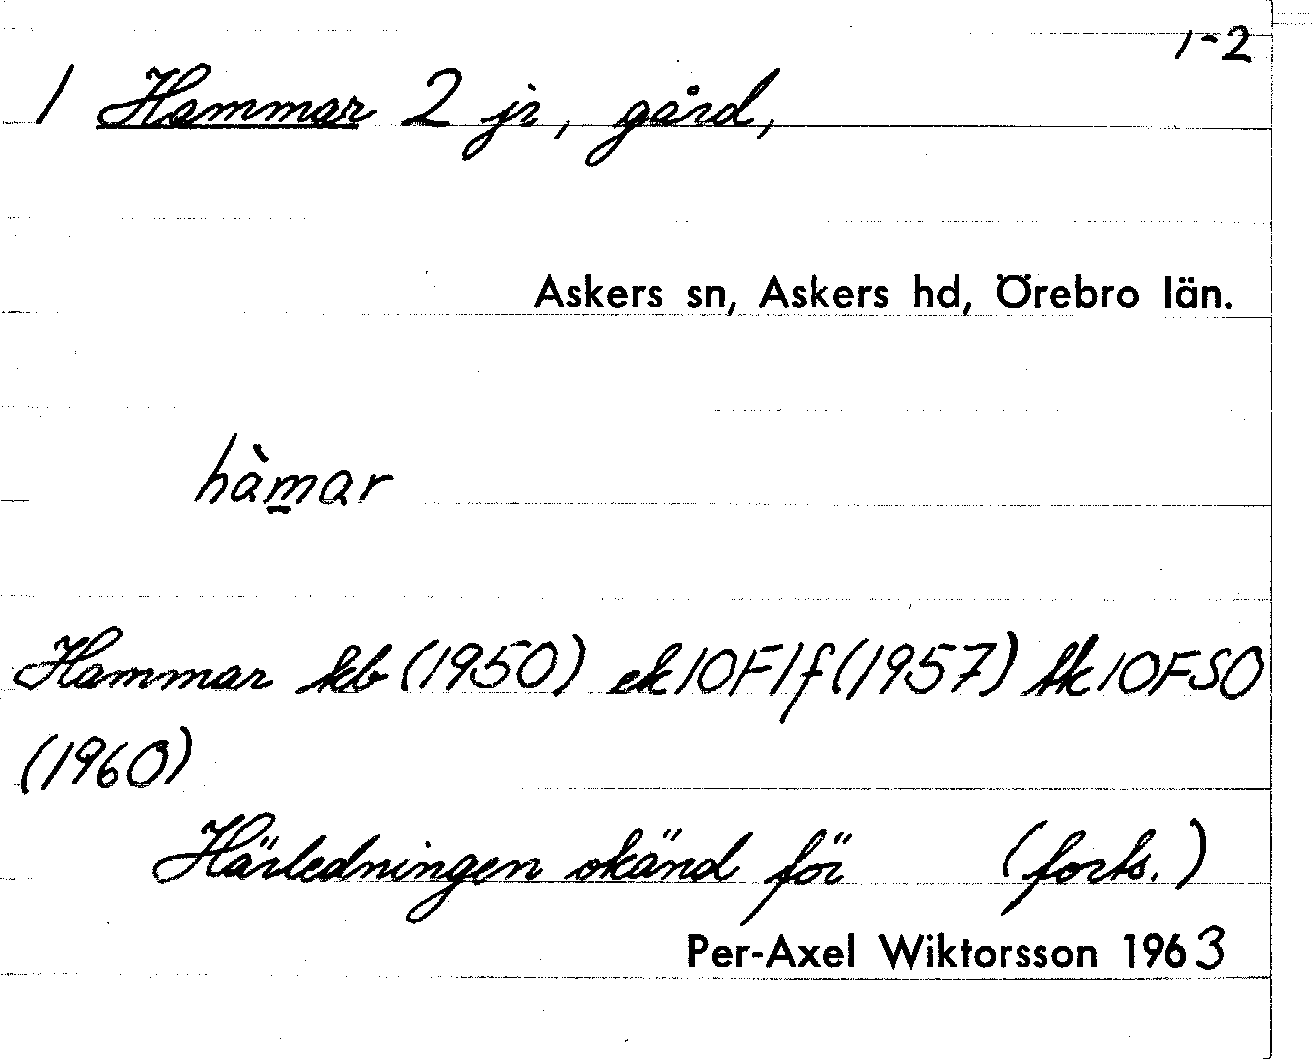 1-2
1 Hammar 2 jr, gård,
Askers sn, Askers hd, Örebro län.
hàm̲ar
Hammar kb (1950) ek10F1f (1957) tk10FSO
(1960)
Härledningen okänd för (forts.)
Per-Axel Wiktorsson 1963